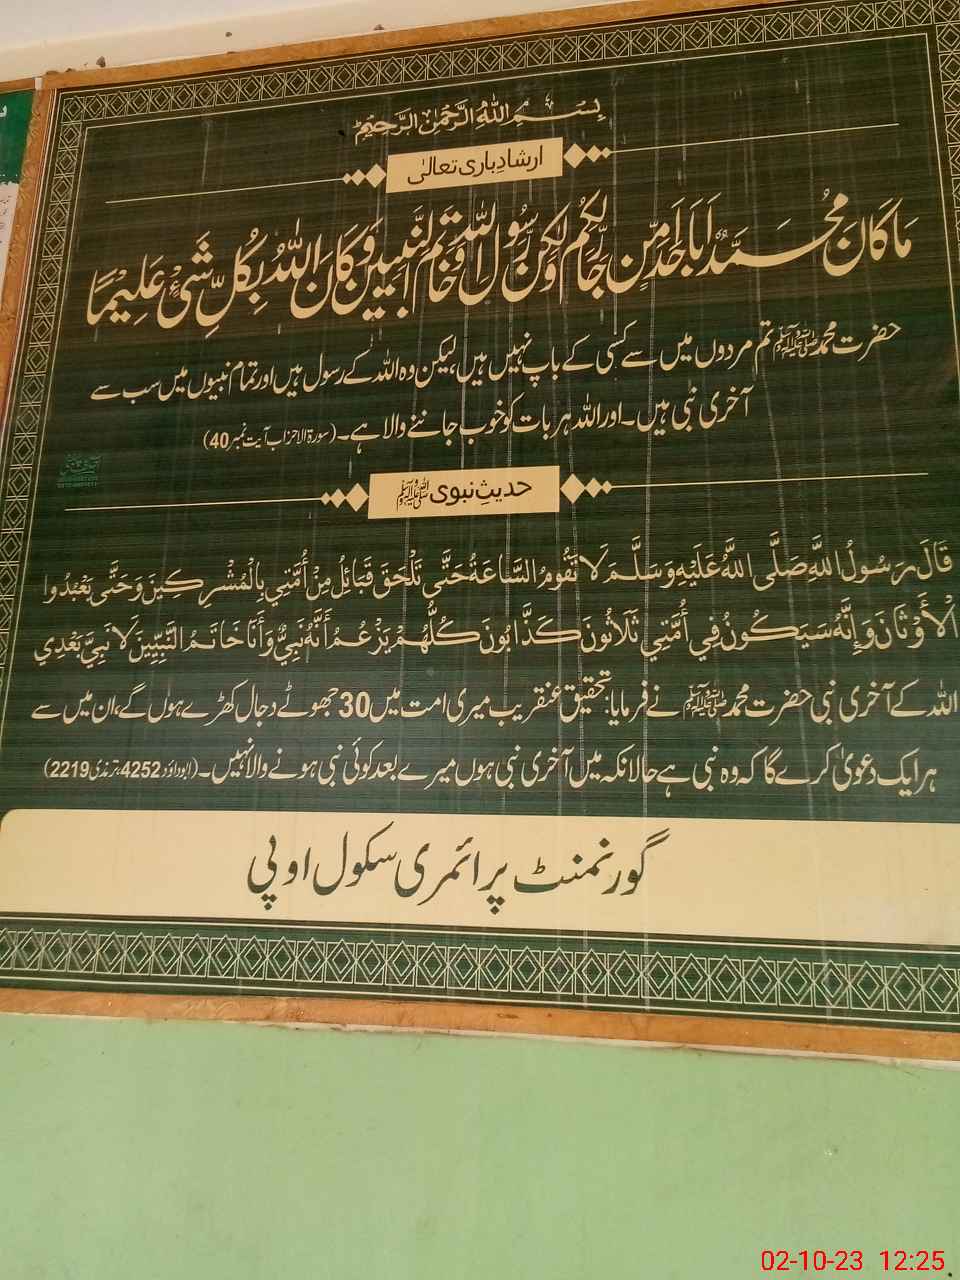 بِسْمِ اللهِ الرَّحْمٰنِ الرَّحِيْمِ
ارشادِباری تعالیٰ
مَا كَانَ مُحَمَّدٌ اَبَا اَحَدٍ مِّن رِّجَالِكُم وَلٰكِن رَّسُولَ اللهِ وَخَاتَمَ النَّبِيّٖنَ وَكَانَ اللهُ بِكُلِّ شَيْءٍ عَلِيْمًا
حضرت محمد ﷺ تم مردوں میں سے کسی کے باپ نہیں ہیں، لیکن وہ اللہ کے رسول ہیں اور تمام نبیوں میں سب سے
آخری نبی ہیں۔ اور اللہ ہر بات کو خوب جاننے والا ہے۔ (سورة الاحزاب آیت نمبر 40)
حدیثِ نبوی ﷺ
قَالَ رَسُولُ اللَّهِ صَلَّى اللَّهُ عَلَيْهِ وَسَلَّمَ لَا تَقُومُ السَّاعَةُ حَتَّى تَلْحَقَ قَبَائِلُ مِنْ أُمَّتِي بِالْمُشْرِكِينَ وَحَتَّى يَعْبُدُوا
الْأَوْثَانَ وَإِنَّهُ سَيَكُونُ فِي أُمَّتِي ثَلَاثُونَ كَذَّابُونَ كُلُّهُمْ يَزْعُمُ أَنَّهُ نَبِيٌّ وَأَنَا خَاتَمُ النَّبِيِّينَ لَا نَبِيَّ بَعْدِي
اللہ کے آخری نبی حضرت محمد ﷺ نے فرمایا: تحقیق عنقریب میری امت میں 30 جھوٹے دجال کھڑے ہوں گے، ان میں سے
ہر ایک دعویٰ کرے گا کہ وہ نبی ہے حالانکہ میں آخری نبی ہوں میرے بعد کوئی نبی ہونے والا نہیں۔ (ابوداؤد 4252، ترمذی 2219)
گورنمنٹ پرائمری سکول اوپی
02-10-23 12:25